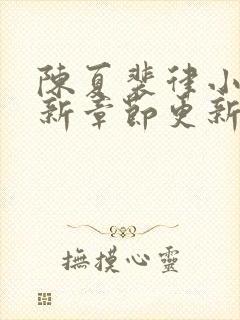 陳夏裴律小
新章節更新
撫摸心靈